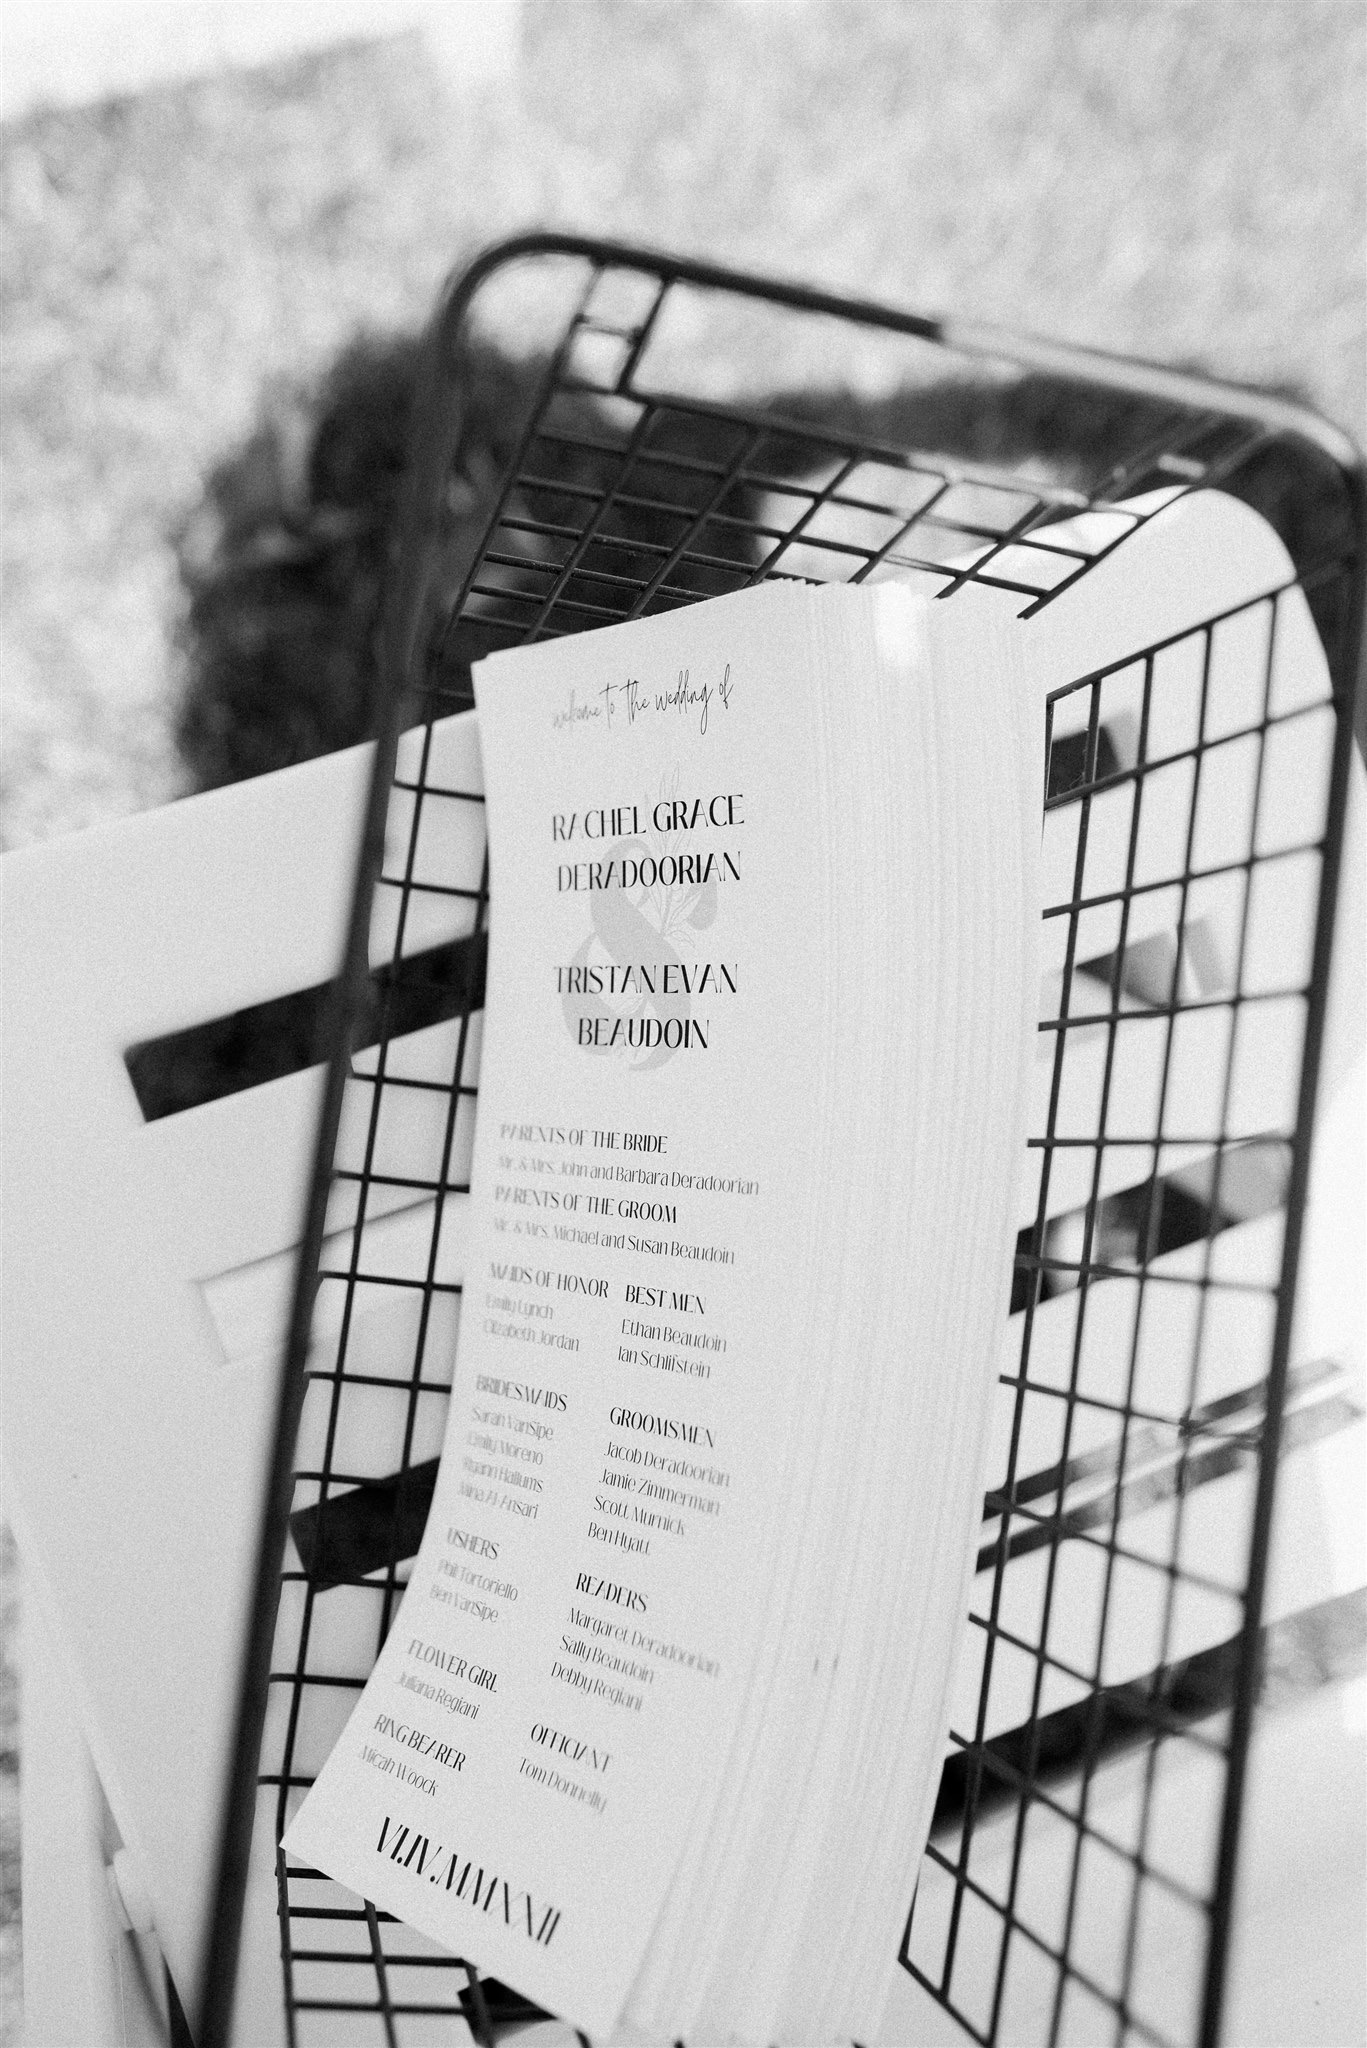 welcome to the wedding of
RACHEL GRACE
DERADOORIAN
&
TRISTAN EVAN
BEAUDOIN
PARENTS OF THE BRIDE
Mr. & Mrs. John and Barbara Deradoorian
PARENTS OF THE GROOM
Mr. & Mrs. Michael and Susan Beaudoin
MAIDS OF HONOR
Emily Lynch
Elizabeth Jordan
BEST MEN
Ethan Beaudoin
Ian Schlifstein
BRIDESMAIDS
Sarah VanSipe
Emily Moreno
Ruann Hallums
Mina Al-Ansari
GROOMSMEN
Jacob Deradoorian
Jamie Zimmerman
Scott Murnick
Ben Hyatt
USHERS
Phil Tortoriello
Ben VanSipe
READERS
Margaret Deradoorian
Sally Beaudoin
Debby Regiani
FLOWER GIRL
Juliana Regiani
RING BEARER
Micah Woock
OFFICIANT
Tom Donnelly
VI.IV.MMXXII